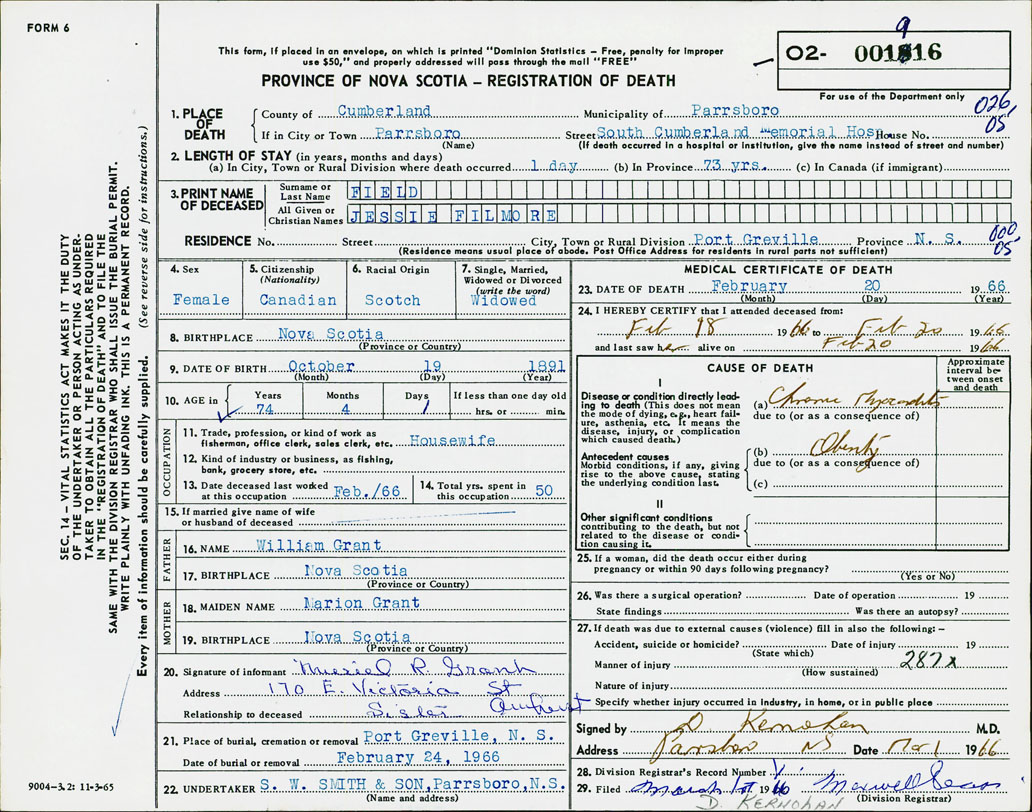 FORM 6
This form, if placed in an envelope, on which is printed "Dominion Statistics – Free, penalty for improper
use $50," and properly addressed will pass through the mail "FREE"
PROVINCE OF NOVA SCOTIA – REGISTRATION OF DEATH
9
02- 001816
For use of the Department only
026
05
SEC. 14 – VITAL STATISTICS ACT MAKES IT THE DUTY
OF THE UNDERTAKER OR PERSON ACTING AS UNDER-
TAKER TO OBTAIN ALL THE PARTICULARS REQUIRED
IN THE "REGISTRATION OF DEATH" AND TO FILE THE
SAME WITH THE DIVISION REGISTRAR WHO SHALL ISSUE THE BURIAL PERMIT.
WRITE PLAINLY WITH UNFADING INK. THIS IS A PERMANENT RECORD.
Every item of information should be carefully supplied. (See reverse side for instructions.)
1. PLACE OF DEATH
County of Cumberland Municipality of Parrsboro
If in City or Town Parrsboro Street South Cumberland Memorial Hosp. House No.
(Name) (If death occurred in a hospital or institution, give the name instead of street and number)
2. LENGTH OF STAY (in years, months and days)
(a) In City, Town or Rural Division where death occurred 1 day (b) In Province 73 yrs. (c) In Canada (if immigrant)
3. PRINT NAME OF DECEASED
Surname or Last Name FIELD
All Given or Christian Names JESSIE FILMORE
RESIDENCE No. Street City, Town or Rural Division Port Greville Province N. S.
000
05
(Residence means usual place of abode. Post Office Address for residents in rural parts not sufficient)
4. Sex
Female
5. Citizenship
(Nationality)
Canadian
6. Racial Origin
Scotch
7. Single, Married,
Widowed or Divorced
(write the word)
Widowed
8. BIRTHPLACE Nova Scotia
(Province or Country)
9. DATE OF BIRTH October 19 1891
(Month) (Day) (Year)
10. AGE in
Years Months Days If less than one day old
74 4 1 hrs. or min.
OCCUPATION
11. Trade, profession, or kind of work as
fisherman, office clerk, sales clerk, etc. Housewife
12. Kind of industry or business, as fishing,
bank, grocery store, etc.
13. Date deceased last worked
at this occupation Feb./66
14. Total yrs. spent in
this occupation 50
15. If married give name of wife
or husband of deceased
FATHER
16. NAME William Grant
17. BIRTHPLACE Nova Scotia
(Province or Country)
MOTHER
18. MAIDEN NAME Marion Grant
19. BIRTHPLACE Nova Scotia
(Province or Country)
20. Signature of informant Muriel R. Grant
Address 170 E. Victoria St
Amherst
Relationship to deceased Sister
21. Place of burial, cremation or removal Port Greville, N. S.
Date of burial or removal February 24, 1966
22. UNDERTAKER S. W. SMITH & SON, Parrsboro, N.S.
(Name and address)
9004-3.2: 11-3-65
MEDICAL CERTIFICATE OF DEATH
23. DATE OF DEATH February 20 1966
(Month) (Day) (Year)
24. I HEREBY CERTIFY that I attended deceased from:
Feb 18 1966 to Feb 20 1966
and last saw her alive on Feb 20 1966
CAUSE OF DEATH
Approximate
interval be-
tween onset
and death
I
Disease or condition directly lead-
ing to death (This does not mean
the mode of dying, e.g., heart fail-
ure, asthenia, etc. It means the
disease, injury, or complication
which caused death.)
(a) Chronic Myocarditis
due to (or as a consequence of)
Antecedent causes
Morbid conditions, if any, giving
rise to the above cause, stating
the underlying condition last.
(b) Obesity
due to (or as a consequence of)
(c)
II
Other significant conditions
contributing to the death, but not
related to the disease or condi-
tion causing it.
25. If a woman, did the death occur either during
pregnancy or within 90 days following pregnancy?
(Yes or No)
26. Was there a surgical operation? Date of operation 19
State findings Was there an autopsy?
27. If death was due to external causes (violence) fill in also the following: –
Accident, suicide or homicide? Date of injury 19
(State which)
Manner of injury 287x
(How sustained)
Nature of injury
Specify whether injury occurred in industry, in home, or in public place
Signed by D Kernohan M.D.
Address Parrsboro NS Date Mar 1 1966
28. Division Registrar's Record Number 1
29. Filed March 1st 1966
(Division Registrar)
D. KERNOHAN